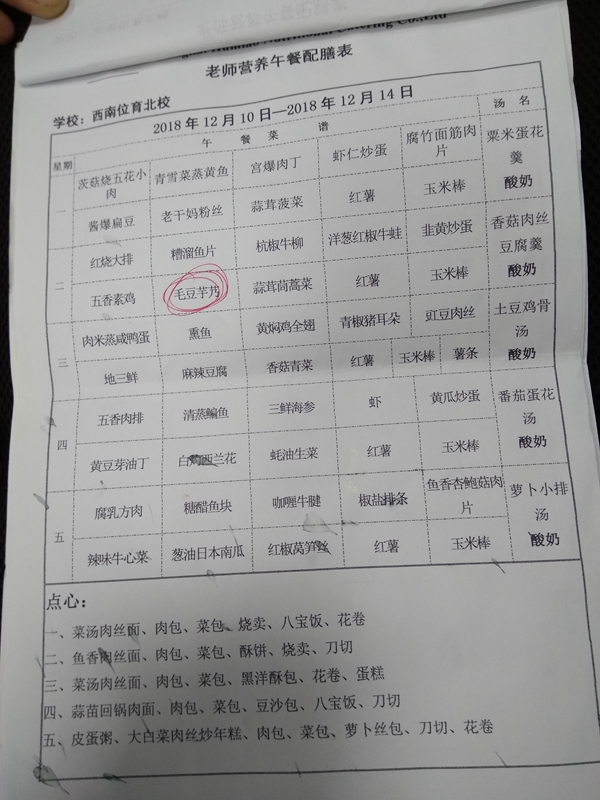 Catering Co.,Ltd
老师营养午餐配膳表
学校：西南位育北校
2018 年 12 月 10 日—2018 年 12 月 14 日
星期 午 餐 菜 谱 汤 名
一 茨菇烧五花小肉 青雪菜蒸黄鱼 宫爆肉丁 虾仁炒蛋 腐竹面筋肉片 粟米蛋花羹 酸奶
酱爆扁豆 老干妈粉丝 蒜茸菠菜 红薯 玉米棒
二 红烧大排 糟溜鱼片 杭椒牛柳 洋葱红椒牛蛙 韭黄炒蛋 香菇肉丝豆腐羹 酸奶
五香素鸡 毛豆芋艿 蒜茸茼蒿菜 红薯 玉米棒
三 肉米蒸咸鸭蛋 熏鱼 黄焖鸡全翅 青椒猪耳朵 豇豆肉丝 土豆鸡骨汤 酸奶
地三鲜 麻辣豆腐 香菇青菜 红薯 玉米棒 薯条
四 五香肉排 清蒸鳊鱼 三鲜海参 虾 黄瓜炒蛋 番茄蛋花汤 酸奶
黄豆芽油丁 白灼西兰花 蚝油生菜 红薯 玉米棒
五 腐乳方肉 糖醋鱼块 咖喱牛腱 椒盐排条 鱼香杏鲍菇肉片 萝卜小排汤 酸奶
辣味牛心菜 葱油日本南瓜 红椒莴笋丝 红薯 玉米棒
点心：
一、菜汤肉丝面、肉包、菜包、烧卖、八宝饭、花卷
二、鱼香肉丝面、肉包、菜包、酥饼、烧卖、刀切
三、菜汤肉丝面、肉包、菜包、黑洋酥包、花卷、蛋糕
四、蒜苗回锅肉面、肉包、菜包、豆沙包、八宝饭、刀切
五、皮蛋粥、大白菜肉丝炒年糕、肉包、菜包、萝卜丝包、刀切、花卷